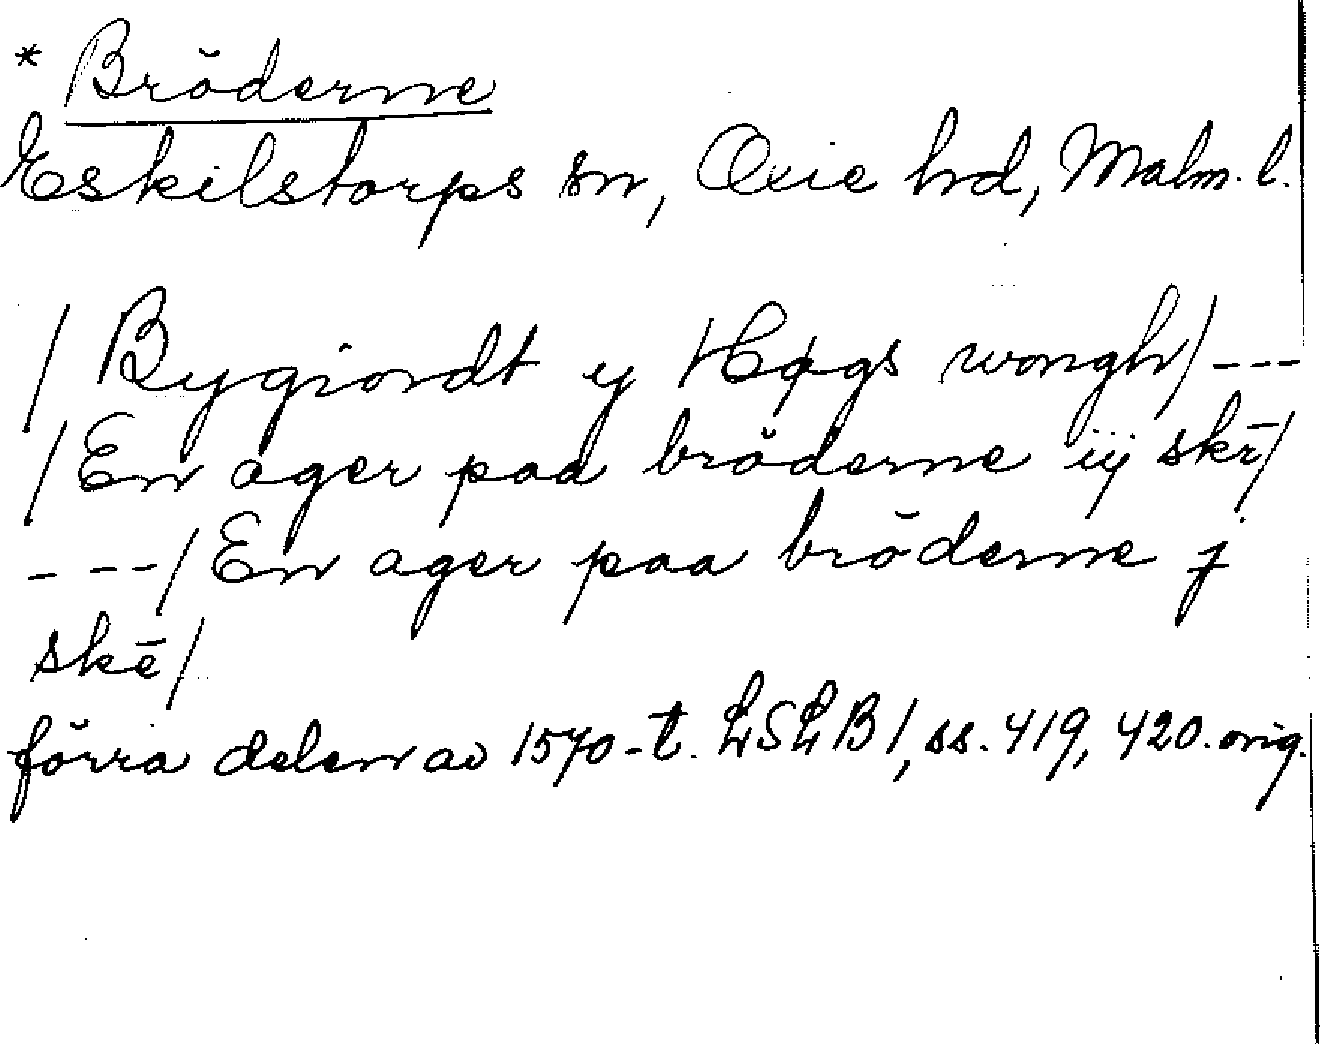 * Brŏderne
Eskilstorps sn, Oxie hd, Malm. l.
/ Bygiordt y Høgs wongh/ ---
/ En ager paa brŏderne iij skē/
- --/ En ager paa brŏderne j
skē/
förra delen av 1570-t. LSLB 1, ss. 419, 420. orig.